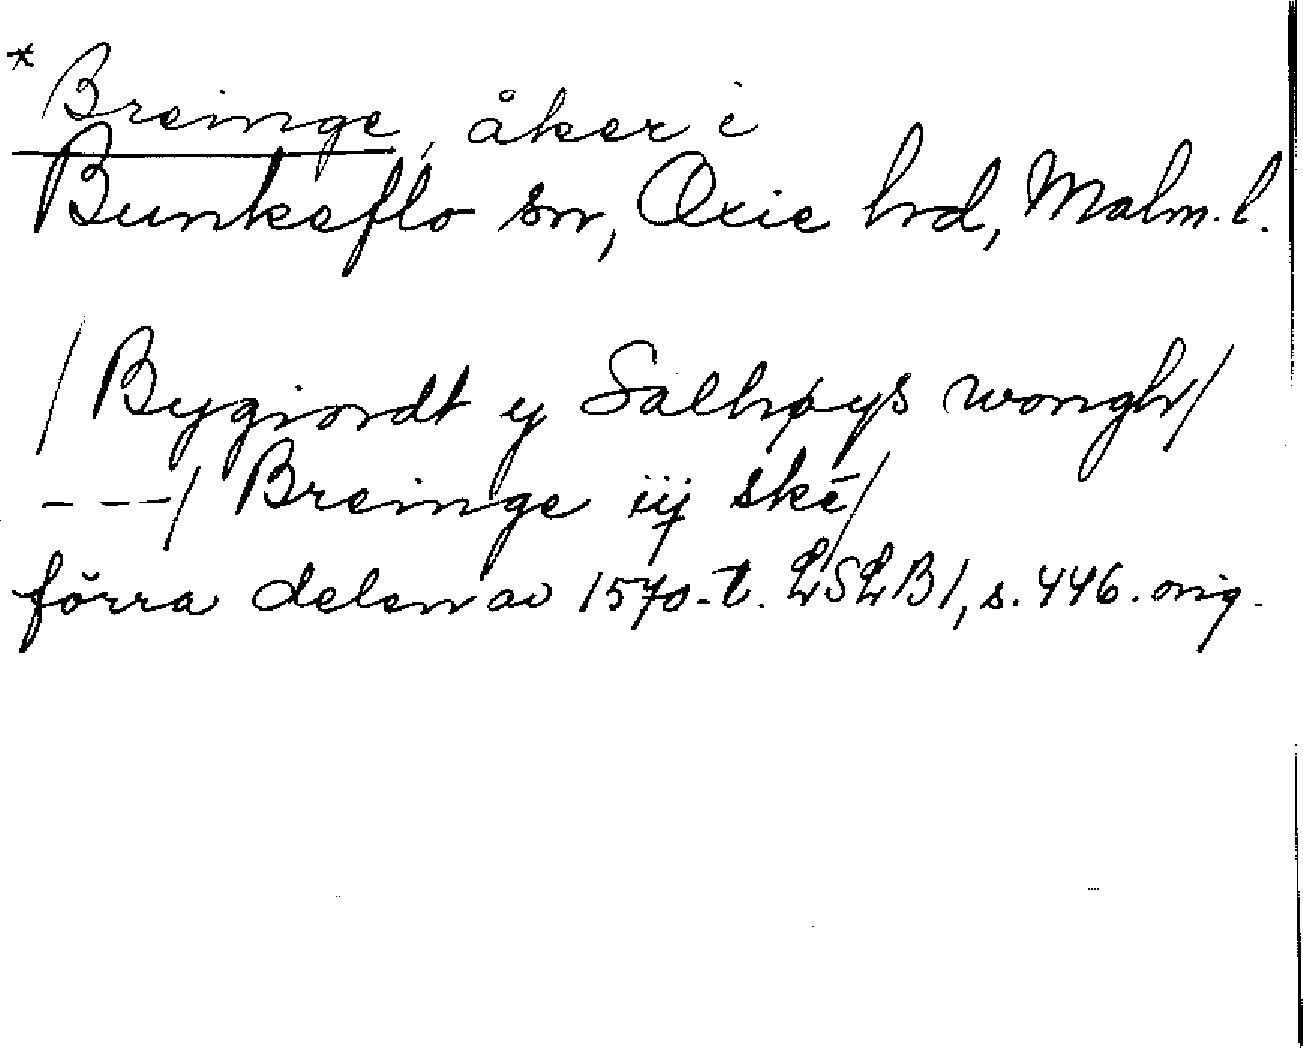 * Breinge, åker i
Bunkeflo sn, Oxie hrd, Malm. l.
/ Bygiordt y Salhøys wongh/
---/ Breinge iij ske/
förra delen av 1570-t. LSLB1, s. 446. orig.